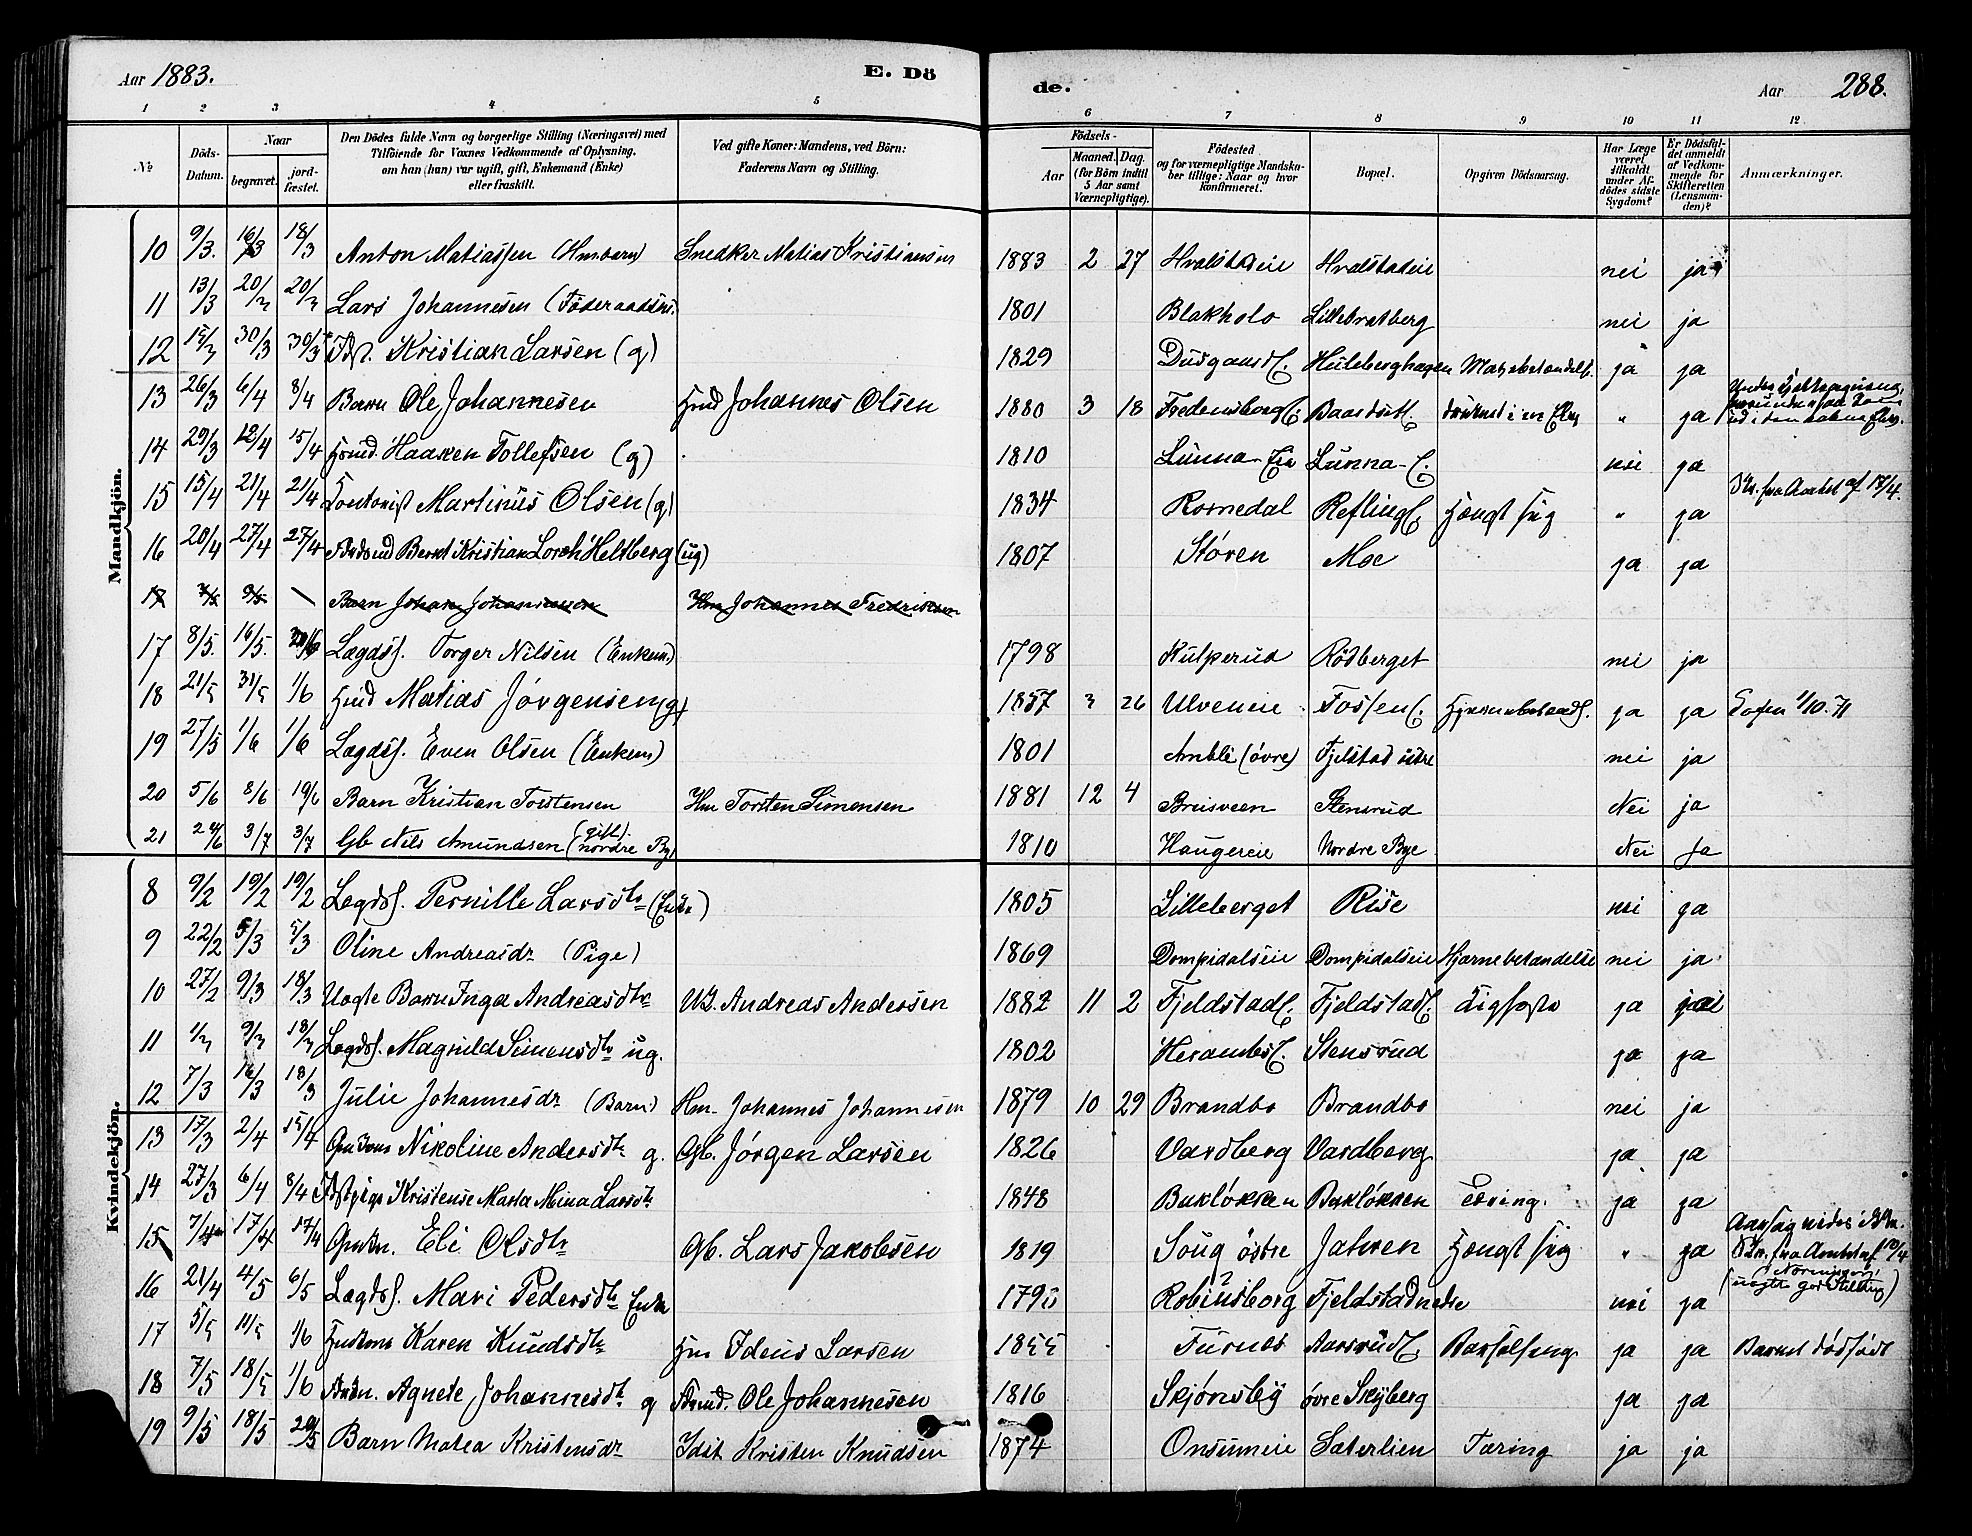 Aar 1883. E. Dö
de. Aar 288.
1 2 3 4 5
6 7 8 9 10 11 12
No Döds-Datum. Naar begravet. jordfæstet. Den Dödes fulde Navn og borgerlige Stilling (Næringsvei) med Tilföiende for Voxnes Vedkommende af Oplysning, om han (hun) var ugift, gift, Enkemand (Enke) eller fraskilt. Ved gifte Koner: Mandens, ved Börn: Faderens Navn og Stilling.
Födsels- Aar Maaned. Dag. (for Börn indtil 5 Aar samt Værnepligtige). Födested og for værnepligtige Mandskaber tillige: Naar og hvor konfirmeret. Bopæl. Opgiven Dödsaarsag. Har Læge været tilkaldt under Afdödes sidste Sygdom? Er Dödsfaldet anmeldt af Vedkommende for Skifteretten (Lensmanden)? Anmærkninger.
Mandkjön.
10 9/3. 16/3 18/3 Anton Matiassen (Hmbarn) Snedker Matias Kristiansen 1883 2 27 Hvalstadeie Hvalstadeie nei ja
11 13/3 20/3 20/3 Lars Johannesen (Föderaadsm. 1801 Blakholo Lillebratberg nei ja
12 15/3 30/3 30/3 Idst. Kristian Larsen (g) 1829 Dusgaard Huleberghagen Mavebetændels. ja ja
13 26/3 6/4 8/4 Barn Ole Johannesen Hmd Johannes Olsen 1880 3 18 Fredensborg Baardset druknet i en Elv " ja
14 29/3 12/4 15/4 Hmd. Haaken Tollefsen (g) 1810 Lunna-Eie Lunna-E. nei ja
15 15/4 21/4 21/4 Martinus Olsen (g) 1834 Romedal Refling Hængt sig " ja Skr. fra Amtet af 17/4.
16 20/4 27/4 27/4 Bernt Kristian Lorch Heltberg (ug) 1807 Støren Moe ja ja
Barn Johan Johannessen Hm Johannes Fredriksen
17 8/5. 16/5. Lægdsl. Torger Nilsen (Enkem.) 1798 Kulperud Rödberget nei ja
18 21/5 31/5 1/6 Hmd Matias Jörgensen (g) 1857 3 26 Ulveneie Fossen Hjernebetænd. ja ja 1/10. 71
19 27/5 1/6 1/6 Lægdsl. Even Olsen (Enkem) 1801 Amble (övre) Fjelstad östre nei ja
20 5/6 8/6 10/6 Barn Kristian Torstensen Hm Torsten Simensen 1881 12 4 Brusveen Stensrud Nei ja
21 24/6 3/7 3/7 Gb Nils Amundsen (gift) (nordre By) 1810 Haugereie Nordre Bye Nei Ja
Kvindekjön.
8 9/2 19/2 19/2 Legdsl. Pernille Larsdtr (Enke) 1805 Lilleberget Rise nei ja
9 22/2 5/3 5/3 Oline Andreasdr (Pige) 1869 Dompidalseie Dompidalseie Hjærnebetændelse nei ja
10 27/2 9/3 18/3 Uægte Barn Inga Andreasdtr Ug. Andreas Andersen 1882 11 2 Fjeldstad Fjeldstad ja ja
11 1/3 9/3 18/3 Legdsl. Magnild Simensdtr ug. 1802 Stensrud ja ja
12 7/3 16/3 18/3 Julie Johannesdr (Barn) Hm. Johannes Johannesen 1879 10 29 Brandbo Brandbo nei ja
13 17/3 2/4 15/4 Nikoline Andersdtr g. Gb. Jörgen Larsen 1826 Vardberg Vardberg ja ja
14 27/3 6/4 8/4 Kristense Maria Mina Larsdtr 1848 Bakløkken Bakløkken Tæring. ja ja
15 17/4 17/4 Eli Olsdtr Gb. Lars Jakobsen 1819 Soug östre Jahren Hængt sig " ja Skr. fra Amtet af 10/4
16 21/4 4/5 6/5 Lægdsl. Mari Pedersdtr Enke Robinsborg Fjeldstad nedre nei ja
17 5/5 11/5 1/6 Karen Knudsdtr Hm Ideus Larsen 1855 Furnes Aarsrud Barselseng ja ja Barnet dödfödt
18 7/5 18/5 1/6 Agnete Johannesdtr g Ole Johannesen 1816 Skjønsby övre Skyberg ja ja
19 9/5 18/5 20/5 Barn Matea Kristensdr Idst Kristen Knudsen 1874 Onsumeie Sæterlien Tæring ja ja